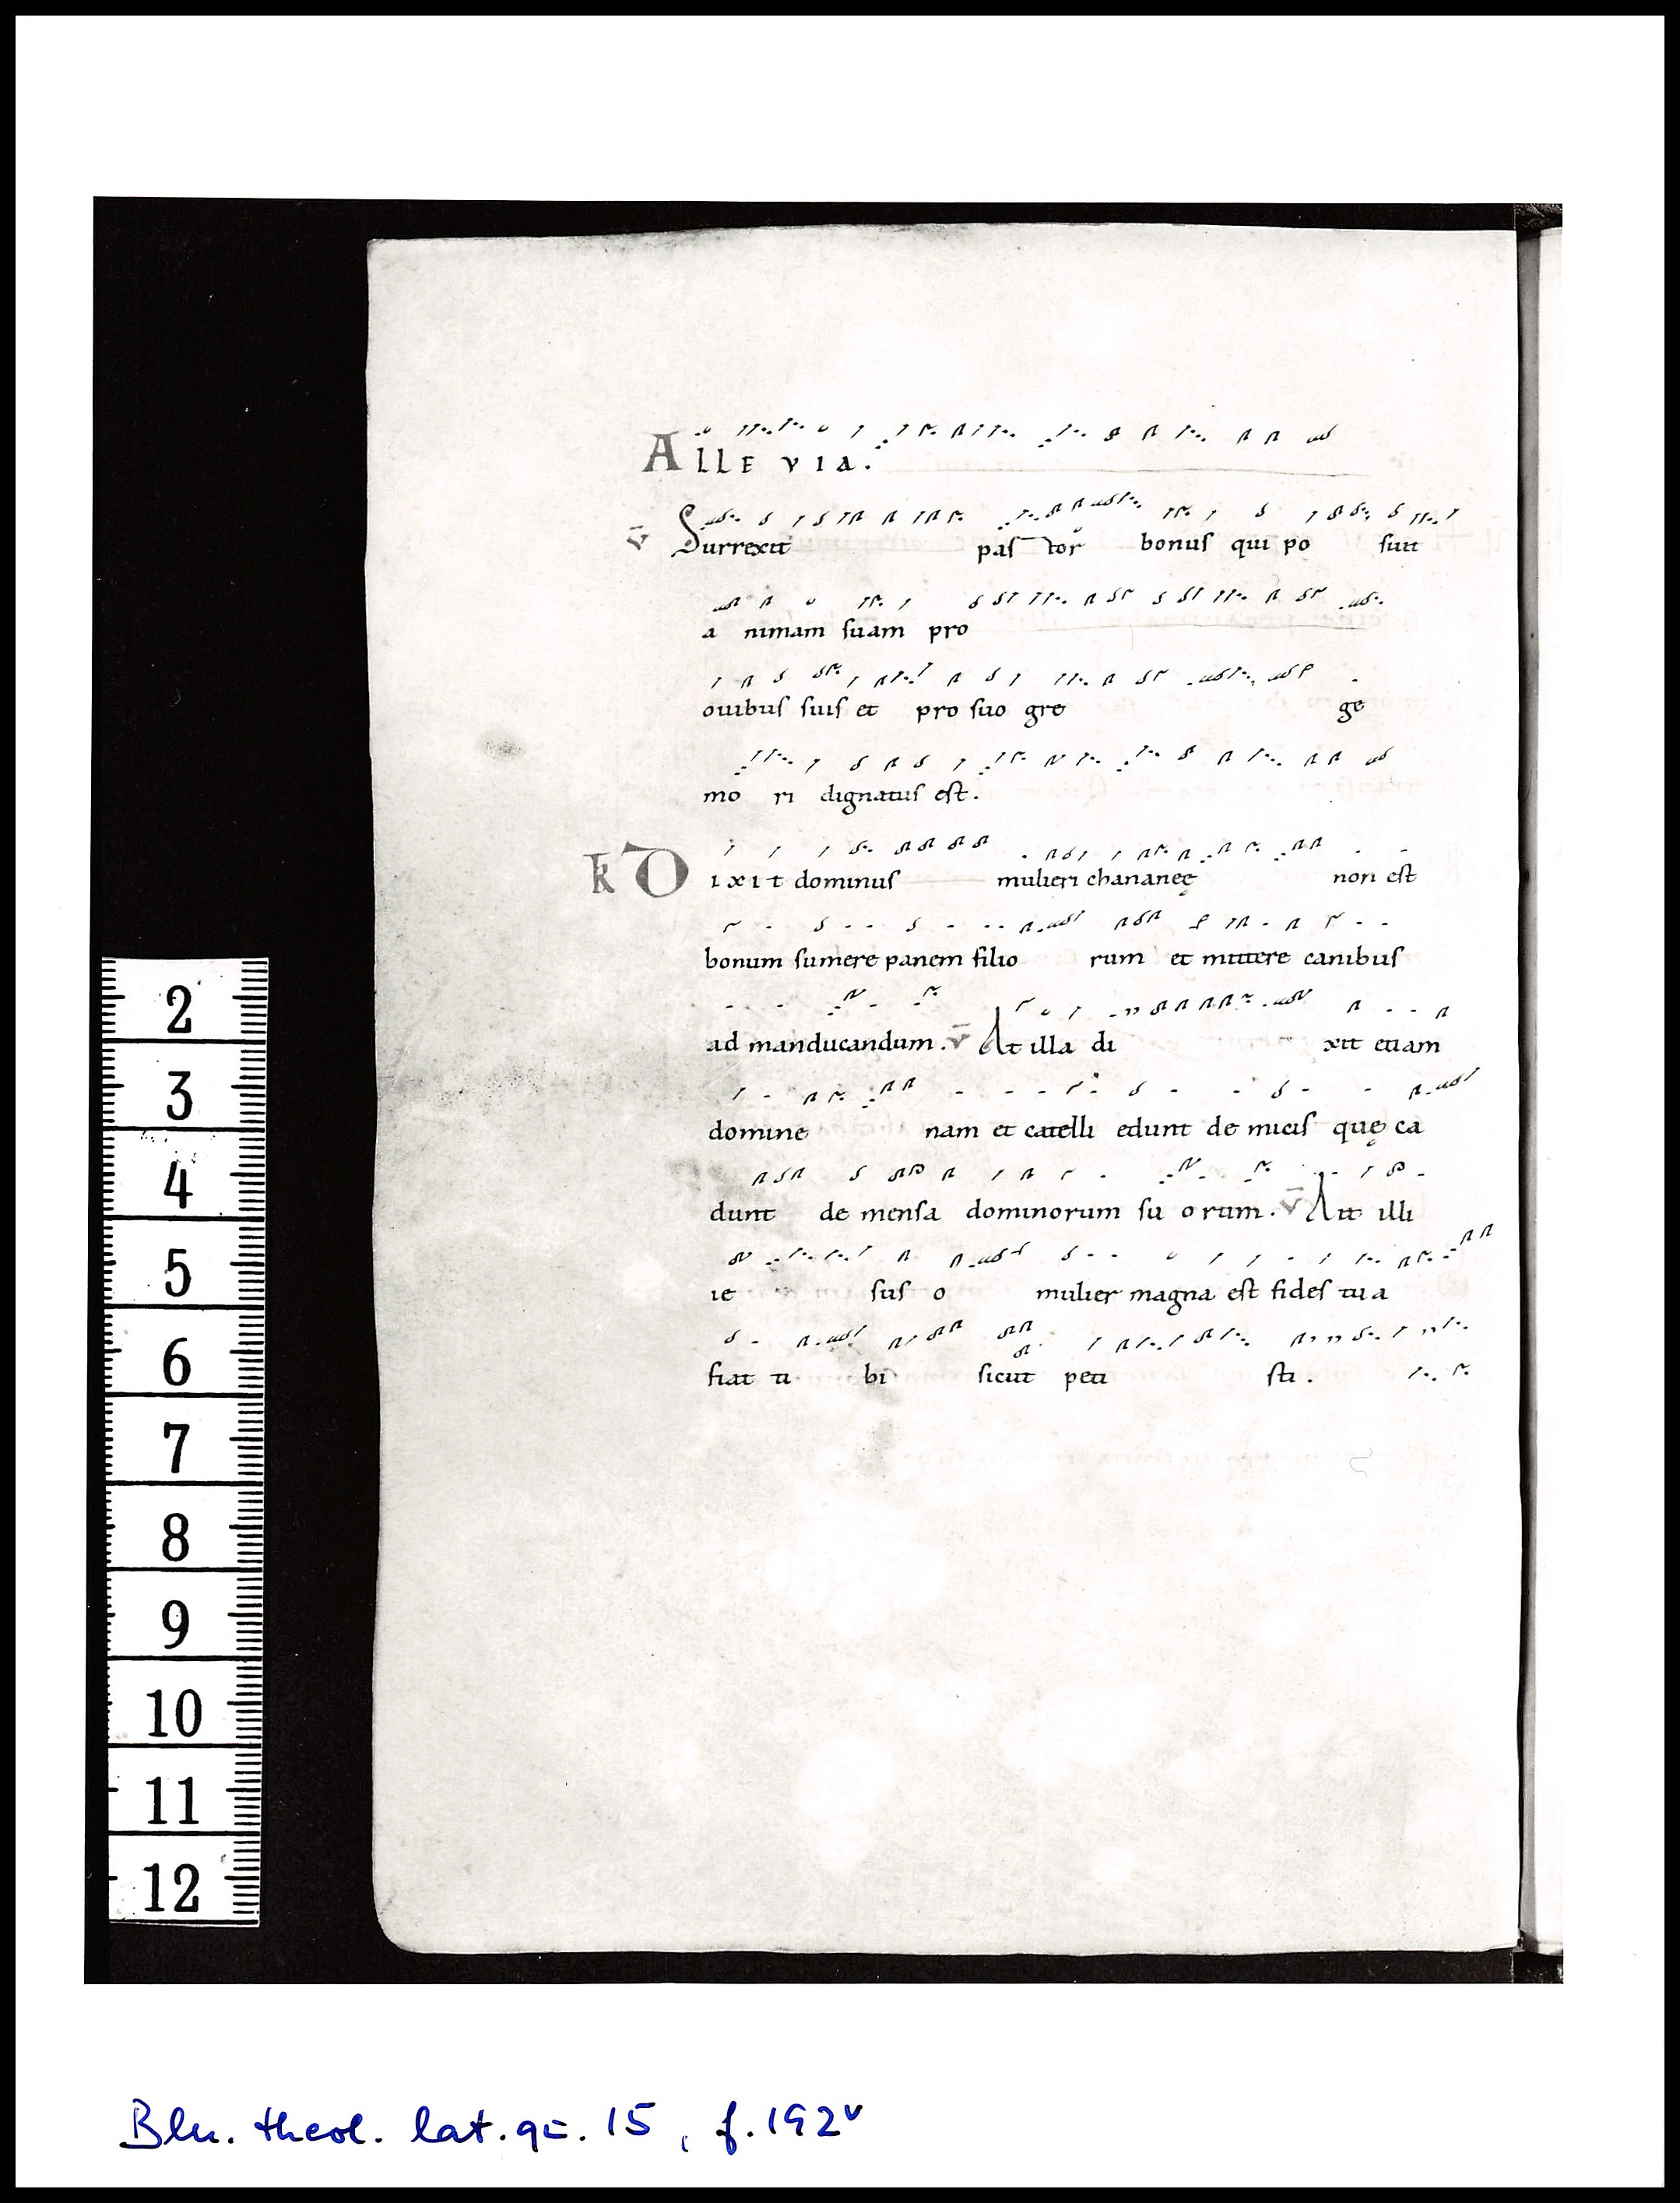 ALLE VIA.
v̄ Surrexit pas tor bonus qui po suit
a nimam suam pro
ovibus suis et pro suo gre ge
mo ri dignatus est.
R D ixit dominus mulieri chananeę non est
bonum sumere panem filio rum et mittere canibus
ad manducandum. v̄ At illa di xit etiam
domine nam et catelli edunt de micis quę ca
dunt de mensa dominorum su orum. v̄ Ait illi
ie sus o mulier magna est fides tua
fiat ti bi sicut peti sti.
2
3
4
5
6
7
8
9
10
11
12
Bln. theol. lat. qu. 15, f. 192v